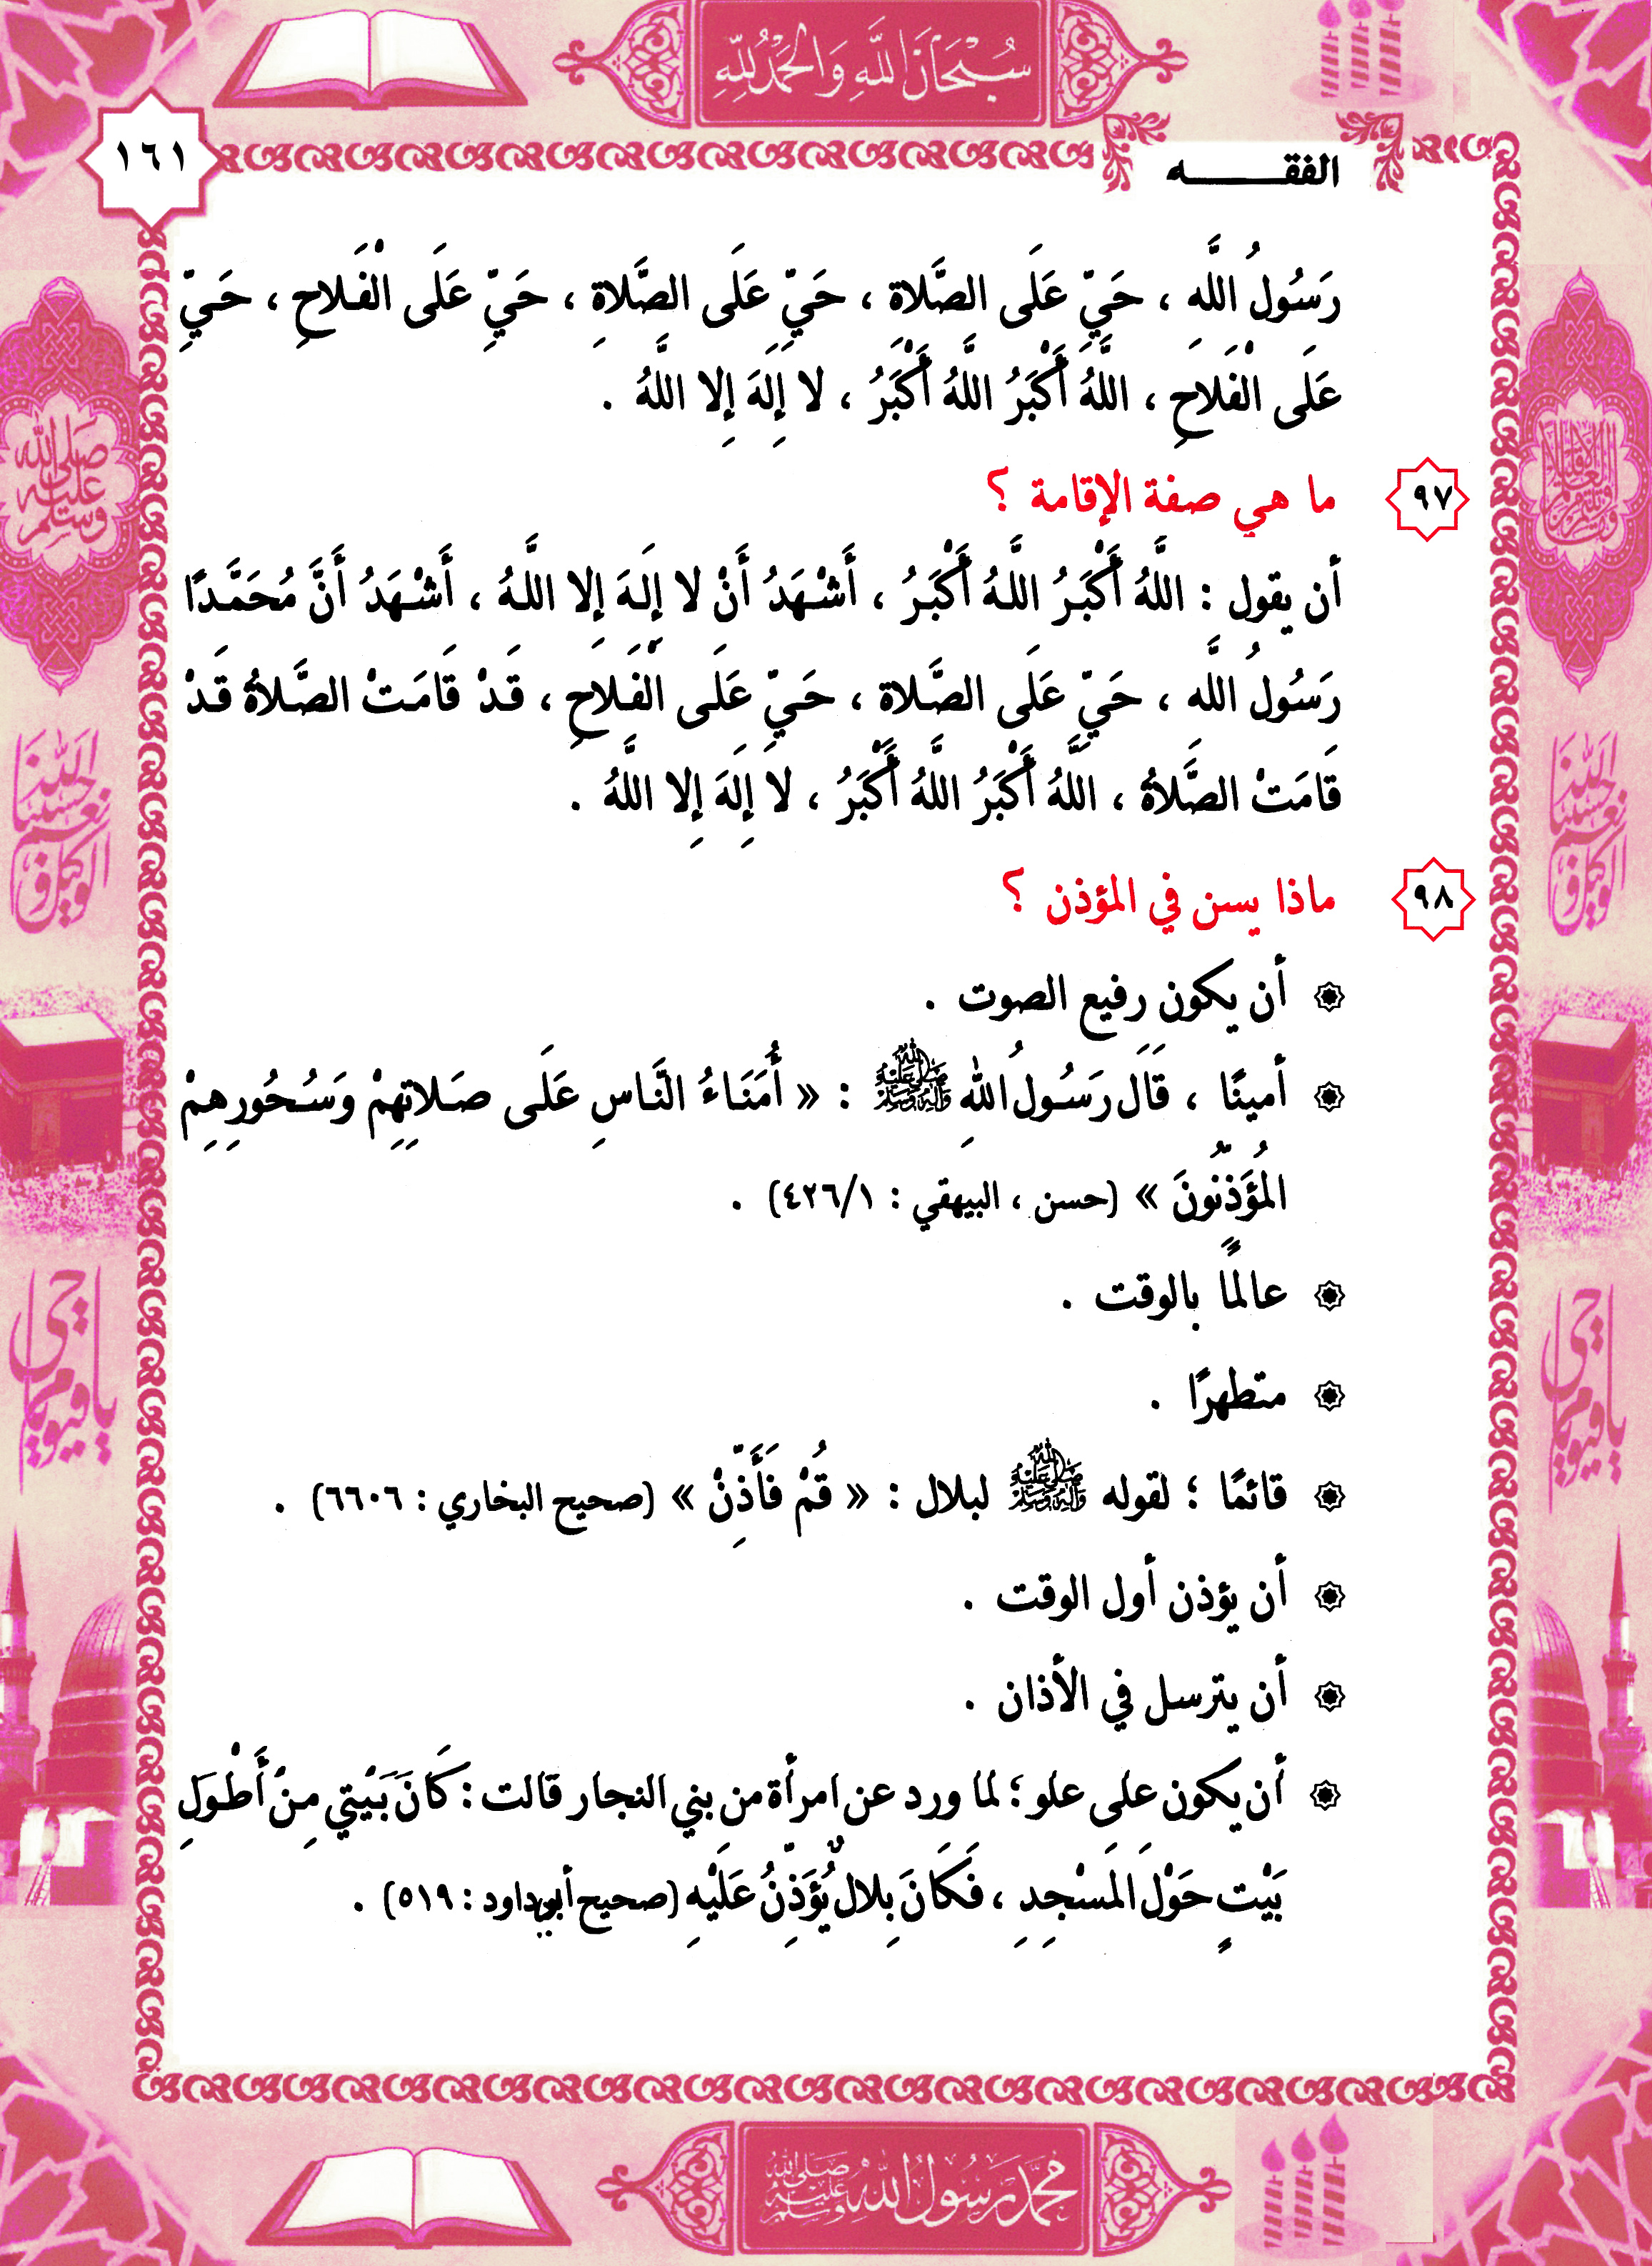 سُبْحَانَ اللَّهِ وَالْحَمْدُ لِلَّهِ
١٦١
الفقـــــه
رَسُولُ اللَّهِ ، حَيِّ عَلَى الصَّلاةِ ، حَيِّ عَلَى الصَّلاةِ ، حَيِّ عَلَى الْفَلاحِ ، حَيِّ
عَلَى الْفَلاحِ ، اللَّهُ أَكْبَرُ اللَّهُ أَكْبَرُ ، لا إِلَهَ إِلا اللَّهُ .
٩٧ ما هي صفة الإقامة ؟
أن يقول : اللَّهُ أَكْبَرُ اللَّهُ أَكْبَرُ ، أَشْهَدُ أَنْ لا إِلَهَ إِلا اللَّهُ ، أَشْهَدُ أَنَّ مُحَمَّدًا
رَسُولُ اللَّهِ ، حَيِّ عَلَى الصَّلاةِ ، حَيِّ عَلَى الْفَلاحِ ، قَدْ قَامَتْ الصَّلاةُ قَدْ
قَامَتْ الصَّلاةُ ، اللَّهُ أَكْبَرُ اللَّهُ أَكْبَرُ ، لا إِلَهَ إِلا اللَّهُ .
٩٨ ماذا يسن في المؤذن ؟
أن يكون رفيع الصوت .
أمينًا ، قَالَ رَسُولُ اللهِ ﷺ : « أُمَنَاءُ النَّاسِ عَلَى صَلاتِهِمْ وَسُحُورِهِمْ
المُؤَذِّنُونَ » (حسن ، البيهقي : ٤٢٦/١) .
عالمًا بالوقت .
متطهرًا .
قائمًا ؛ لقوله ﷺ لبلال : « قُمْ فَأَذِّنْ » (صحيح البخاري : ٦٦٠٦) .
أن يؤذن أول الوقت .
أن يترسل في الأذان .
أن يكون على علو ؛ لما ورد عن امرأة من بني النجار قالت : كَانَ بَيْتِي مِنْ أَطْوَلِ
بَيْتٍ حَوْلَ المَسْجِدِ ، فَكَانَ بِلالٌ يُؤَذِّنُ عَلَيْهِ (صحيح أبي داود : ٥١٩) .
صلى الله عليه وسلم
حسبنا الله ونعم الوكيل
حسبنا الله ونعم الوكيل
يا حي يا قيوم
يا حي يا قيوم
مُحَمَّد رَسُولُ اللهِ صلى الله عليه وسلم